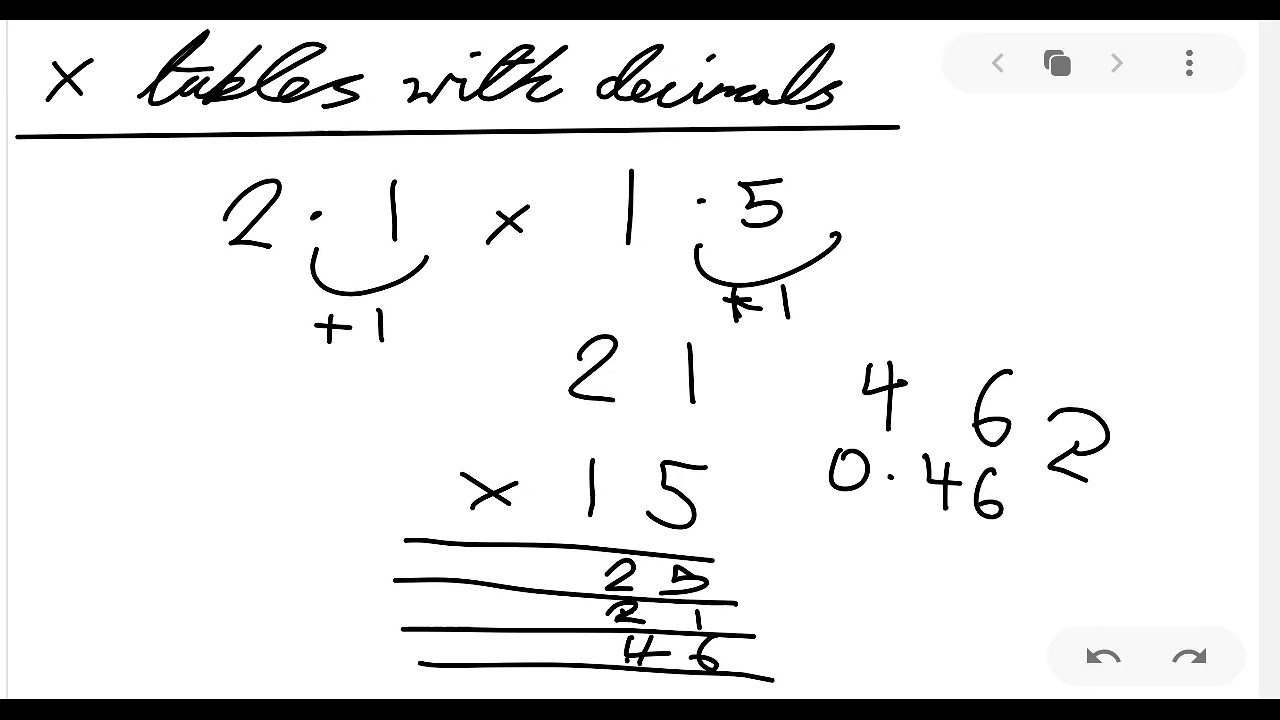 × tables with decimals
2.1 × 1.5
+1 +1
21
4 6 2
× 15
0.46
25
21
46